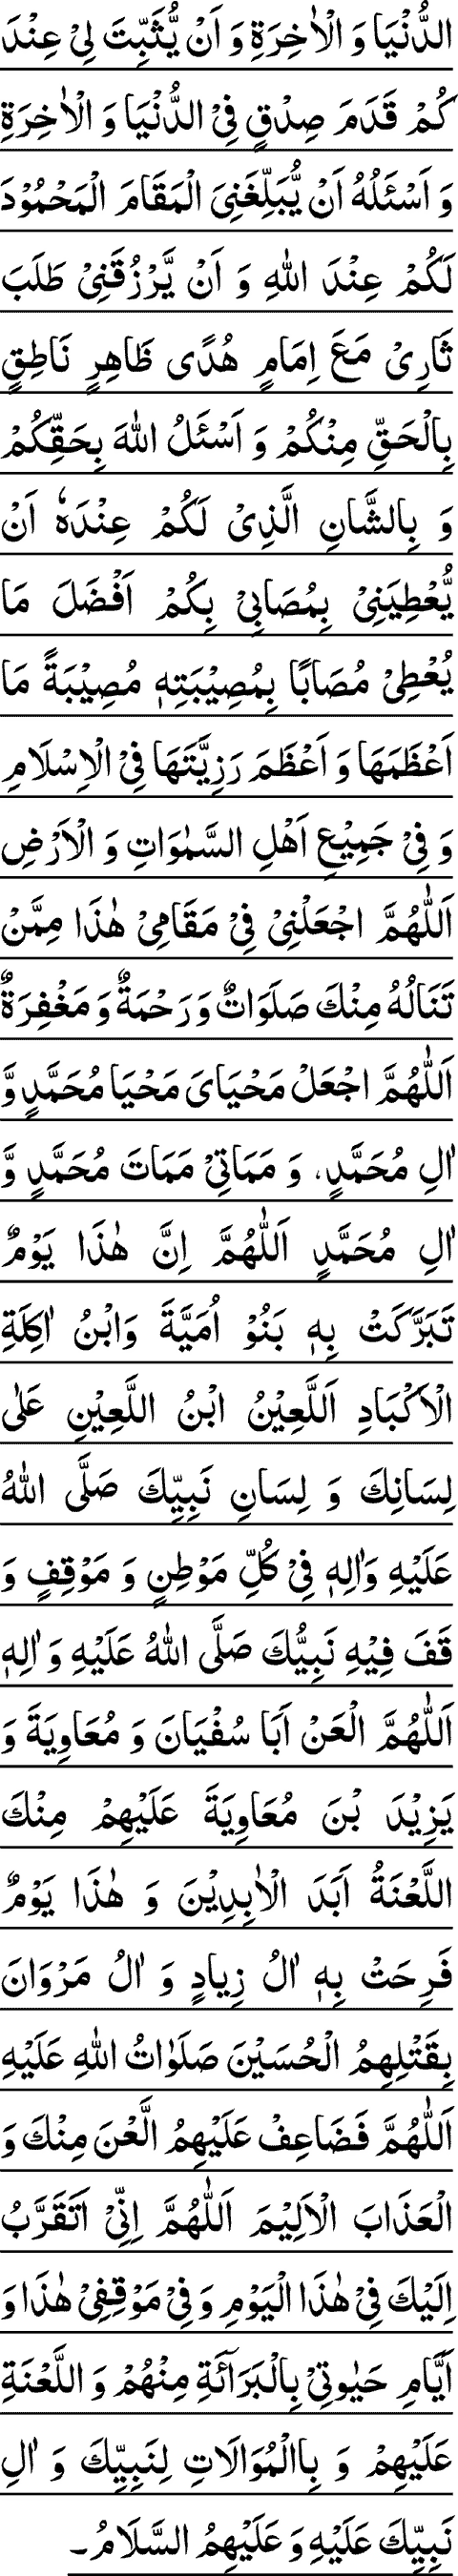 الدُّنْيَا وَ الْاٰخِرَةِ وَ اَنْ يُّثَبِّتَ لِيْ عِنْدَ
كُمْ قَدَمَ صِدْقٍ فِيْ الدُّنْيَا وَ الْاٰخِرَةِ
وَ اَسْئَلُهُ اَنْ يُّبَلِّغَنِيَ الْمَقَامَ الْمَحْمُوْدَ
لَكُمْ عِنْدَ اللهِ وَ اَنْ يَّرْزُقَنِيْ طَلَبَ
ثَارِيْ مَعَ اِمَامٍ هُدًى ظَاهِرٍ نَاطِقٍ
بِالْحَقِّ مِنْكُمْ وَ اَسْئَلُ اللهَ بِحَقِّكُمْ
وَ بِالشَّانِ الَّذِيْ لَكُمْ عِنْدَهٗ اَنْ
يُّعْطِيَنِيْ بِمُصَابِيْ بِكُمْ اَفْضَلَ مَا
يُعْطِيْ مُصَابًا بِمُصِيْبَتِهٖ مُصِيْبَةً مَا
اَعْظَمَهَا وَ اَعْظَمَ رَزِيَّتَهَا فِيْ الْاِسْلَامِ
وَ فِيْ جَمِيْعِ اَهْلِ السَّمٰوَاتِ وَ الْاَرْضِ
اَللّٰهُمَّ اجْعَلْنِيْ فِيْ مَقَامِيْ هٰذَا مِمَّنْ
تَنَالُهُ مِنْكَ صَلَوَاتٌ وَ رَحْمَةٌ وَ مَغْفِرَةٌ
اَللّٰهُمَّ اجْعَلْ مَحْيَايَ مَحْيَا مُحَمَّدٍ وَّ
اٰلِ مُحَمَّدٍ، وَ مَمَاتِيْ مَمَاتَ مُحَمَّدٍ وَّ
اٰلِ مُحَمَّدٍ اَللّٰهُمَّ اِنَّ هٰذَا يَوْمٌ
تَبَرَّكَتْ بِهٖ بَنُوْ اُمَيَّةَ وَابْنُ اٰكِلَةِ
الْاَكْبَادِ اَللَّعِيْنُ ابْنُ اللَّعِيْنِ عَلٰى
لِسَانِكَ وَ لِسَانِ نَبِيِّكَ صَلَّى اللهُ
عَلَيْهِ وَاٰلِهٖ فِيْ كُلِّ مَوْطِنٍ وَ مَوْقِفٍ وَ
قَفَ فِيْهِ نَبِيُّكَ صَلَّى اللهُ عَلَيْهِ وَ اٰلِهٖ
اَللّٰهُمَّ الْعَنْ اَبَا سُفْيَانَ وَ مُعَاوِيَةَ وَ
يَزِيْدَ بْنَ مُعَاوِيَةَ عَلَيْهِمْ مِنْكَ
اللَّعْنَةُ اَبَدَ الْاٰبِدِيْنَ وَ هٰذَا يَوْمٌ
فَرِحَتْ بِهٖ اٰلُ زِيادٍ وَ اٰلُ مَرْوَانَ
بِقَتْلِهِمُ الْحُسَيْنَ صَلَوٰاتُ اللهِ عَلَيْهِ
اَللّٰهُمَّ فَضَاعِفْ عَلَيْهِمُ الَّعْنَ مِنْكَ وَ
الْعَذَابَ الْاَلِيْمَ اَللّٰهُمَّ اِنِّيْ اَتَقَرَّبُ
اِلَيْكَ فِيْ هٰذَا الْيَوْمِ وَ فِيْ مَوْقِفِيْ هٰذَا وَ
اَيَّامِ حَيٰوتِيْ بِالْبَرَآئَةِ مِنْهُمْ وَ اللَّعْنَةِ
عَلَيْهِمْ وَ بِاالْمُوَالَاتِ لِنَبِيِّكَ وَ اٰلِ
نَبِيِّكَ عَلَيْهِ وَ عَلَيْهِمُ السَّلَامُ۔